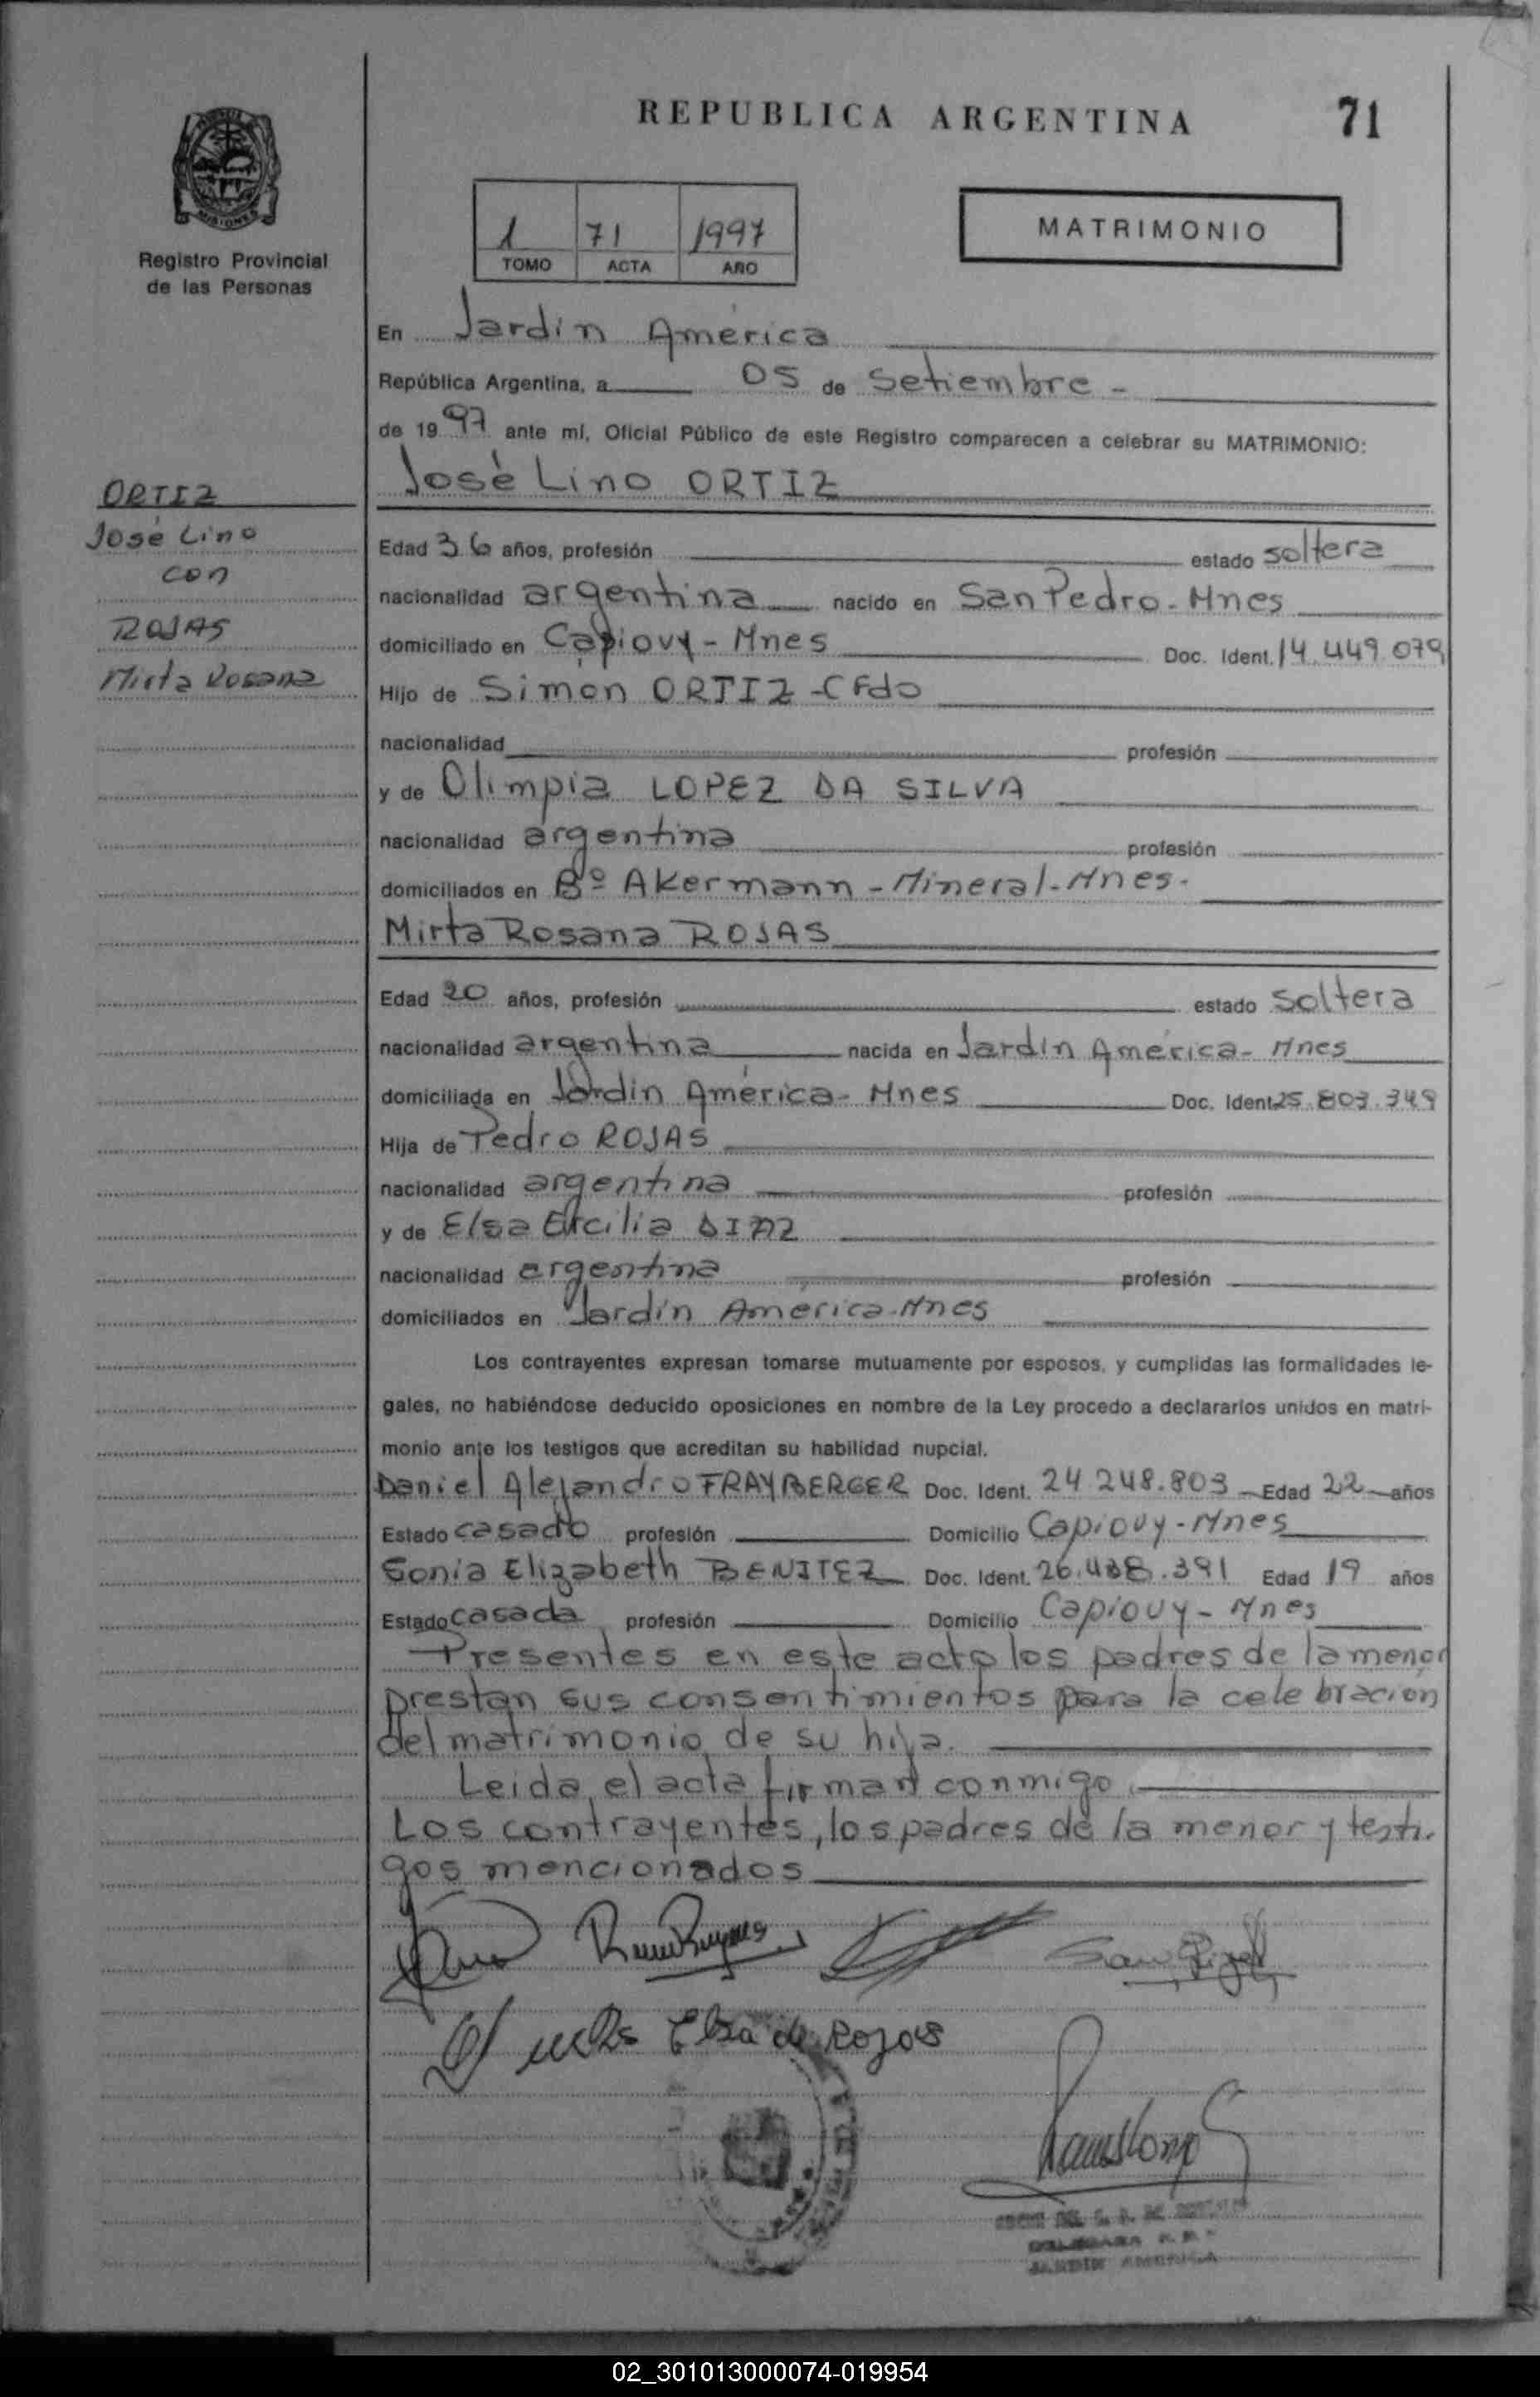 REPUBLICA ARGENTINA
71
MISIONES
Registro Provincial
de las Personas
1 71 1997
TOMO ACTA AÑO
MATRIMONIO
En Jardín América
República Argentina, a 05 de Setiembre -
de 1997 ante mí, Oficial Público de este Registro comparecen a celebrar su MATRIMONIO:
José Lino ORTIZ
ORTIZ
José Lino
con
ROJAS
Mirta Rosana
Edad 36 años, profesión estado soltera
nacionalidad argentina nacido en San Pedro - Mnes
domiciliado en Capiovy - Mnes Doc. Ident. 14.449.079
Hijo de Simon ORTIZ - Cfdo
nacionalidad profesión
y de Olimpia LOPEZ DA SILVA
nacionalidad argentina profesión
domiciliados en Bº Akermann - Mineral - Mnes.
Mirta Rosana ROJAS
Edad 20 años, profesión estado soltera
nacionalidad argentina nacida en Jardín América - Mnes
domiciliada en Jardín América - Mnes Doc. Ident. 25.803.349
Hija de Pedro ROJAS
nacionalidad argentina profesión
y de Elsa Ercilia DIAZ
nacionalidad argentina profesión
domiciliados en Jardín América - Mnes
Los contrayentes expresan tomarse mutuamente por esposos, y cumplidas las formalidades le-
gales, no habiéndose deducido oposiciones en nombre de la Ley procedo a declararlos unidos en matri-
monio ante los testigos que acreditan su habilidad nupcial.
Daniel Alejandro FRAYBERGER Doc. Ident. 24 248.803 Edad 22 años
Estado casado profesión Domicilio Capiovy - Mnes
Sonia Elizabeth BENITEZ Doc. Ident. 26.438.391 Edad 19 años
Estado casada profesión Domicilio Capiovy - Mnes
Presentes en este acto los padres de la menor
prestan sus consentimientos para la celebración
del matrimonio de su hija.
Leida el acta firman conmigo.
Los contrayentes, los padres de la menor y testi-
gos mencionados
Elsa de Rojas
JARDIN AMERICA
02_301013000074-019954